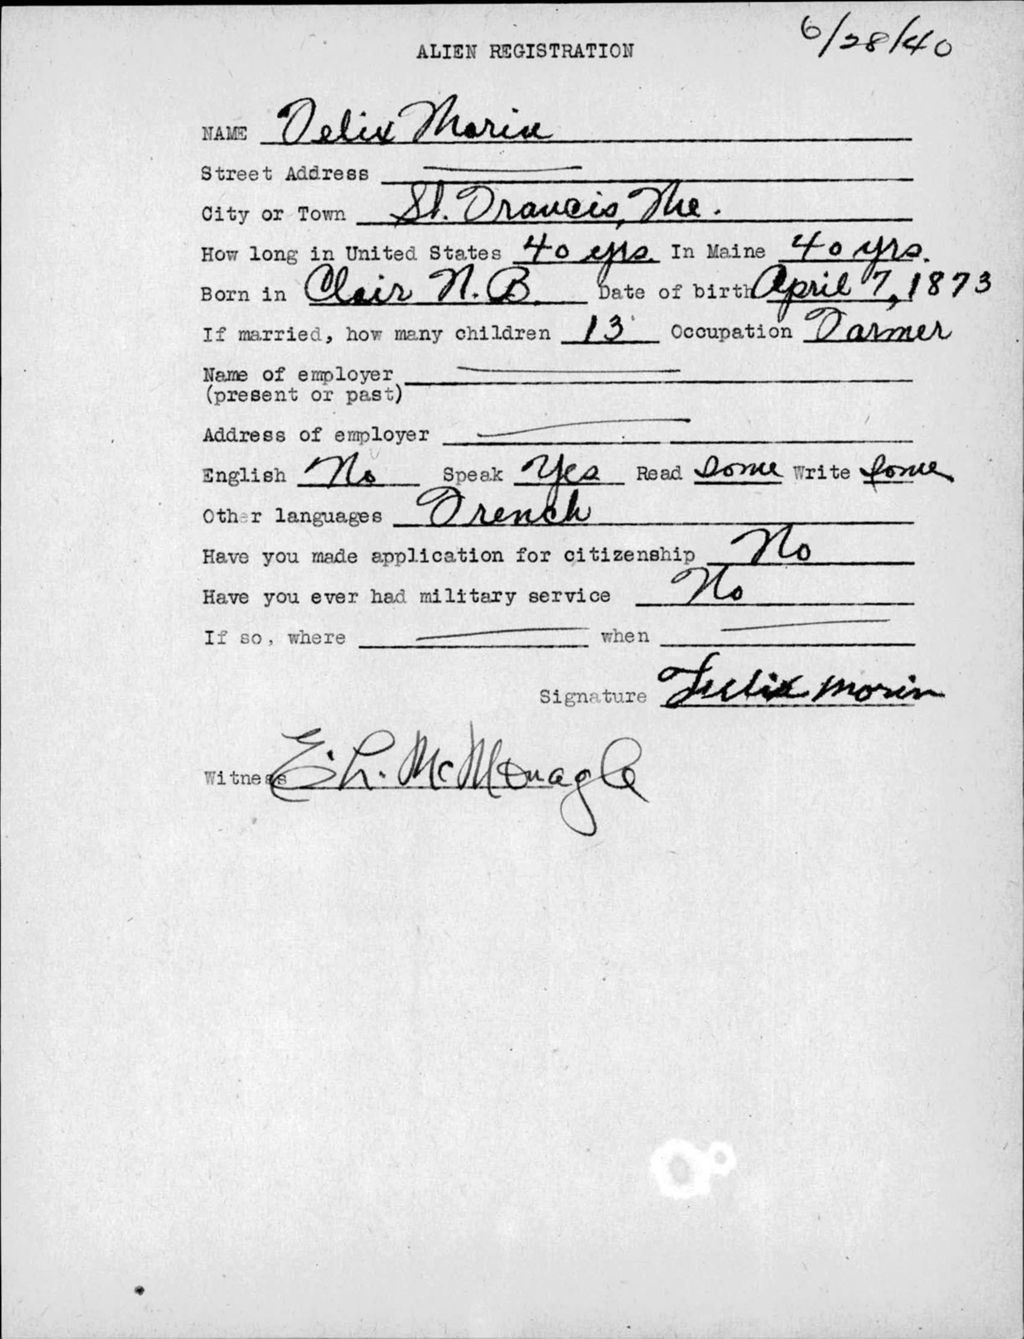 6/28/40
ALIEN REGISTRATION
NAME Felix Morin
Street Address
City or Town St. Francis, Me.
How long in United States 40 yrs. In Maine 40 yrs.
Born in Clair N.B. Date of birth April 7, 1873
If married, how many children 13 Occupation Farmer
Name of employer
(present or past)
Address of employer
English No Speak Yes Read some Write some
Other languages French
Have you made application for citizenship No
Have you ever had military service No
If so, where when
Signature Felix morin
Witness E. L. McMonagle